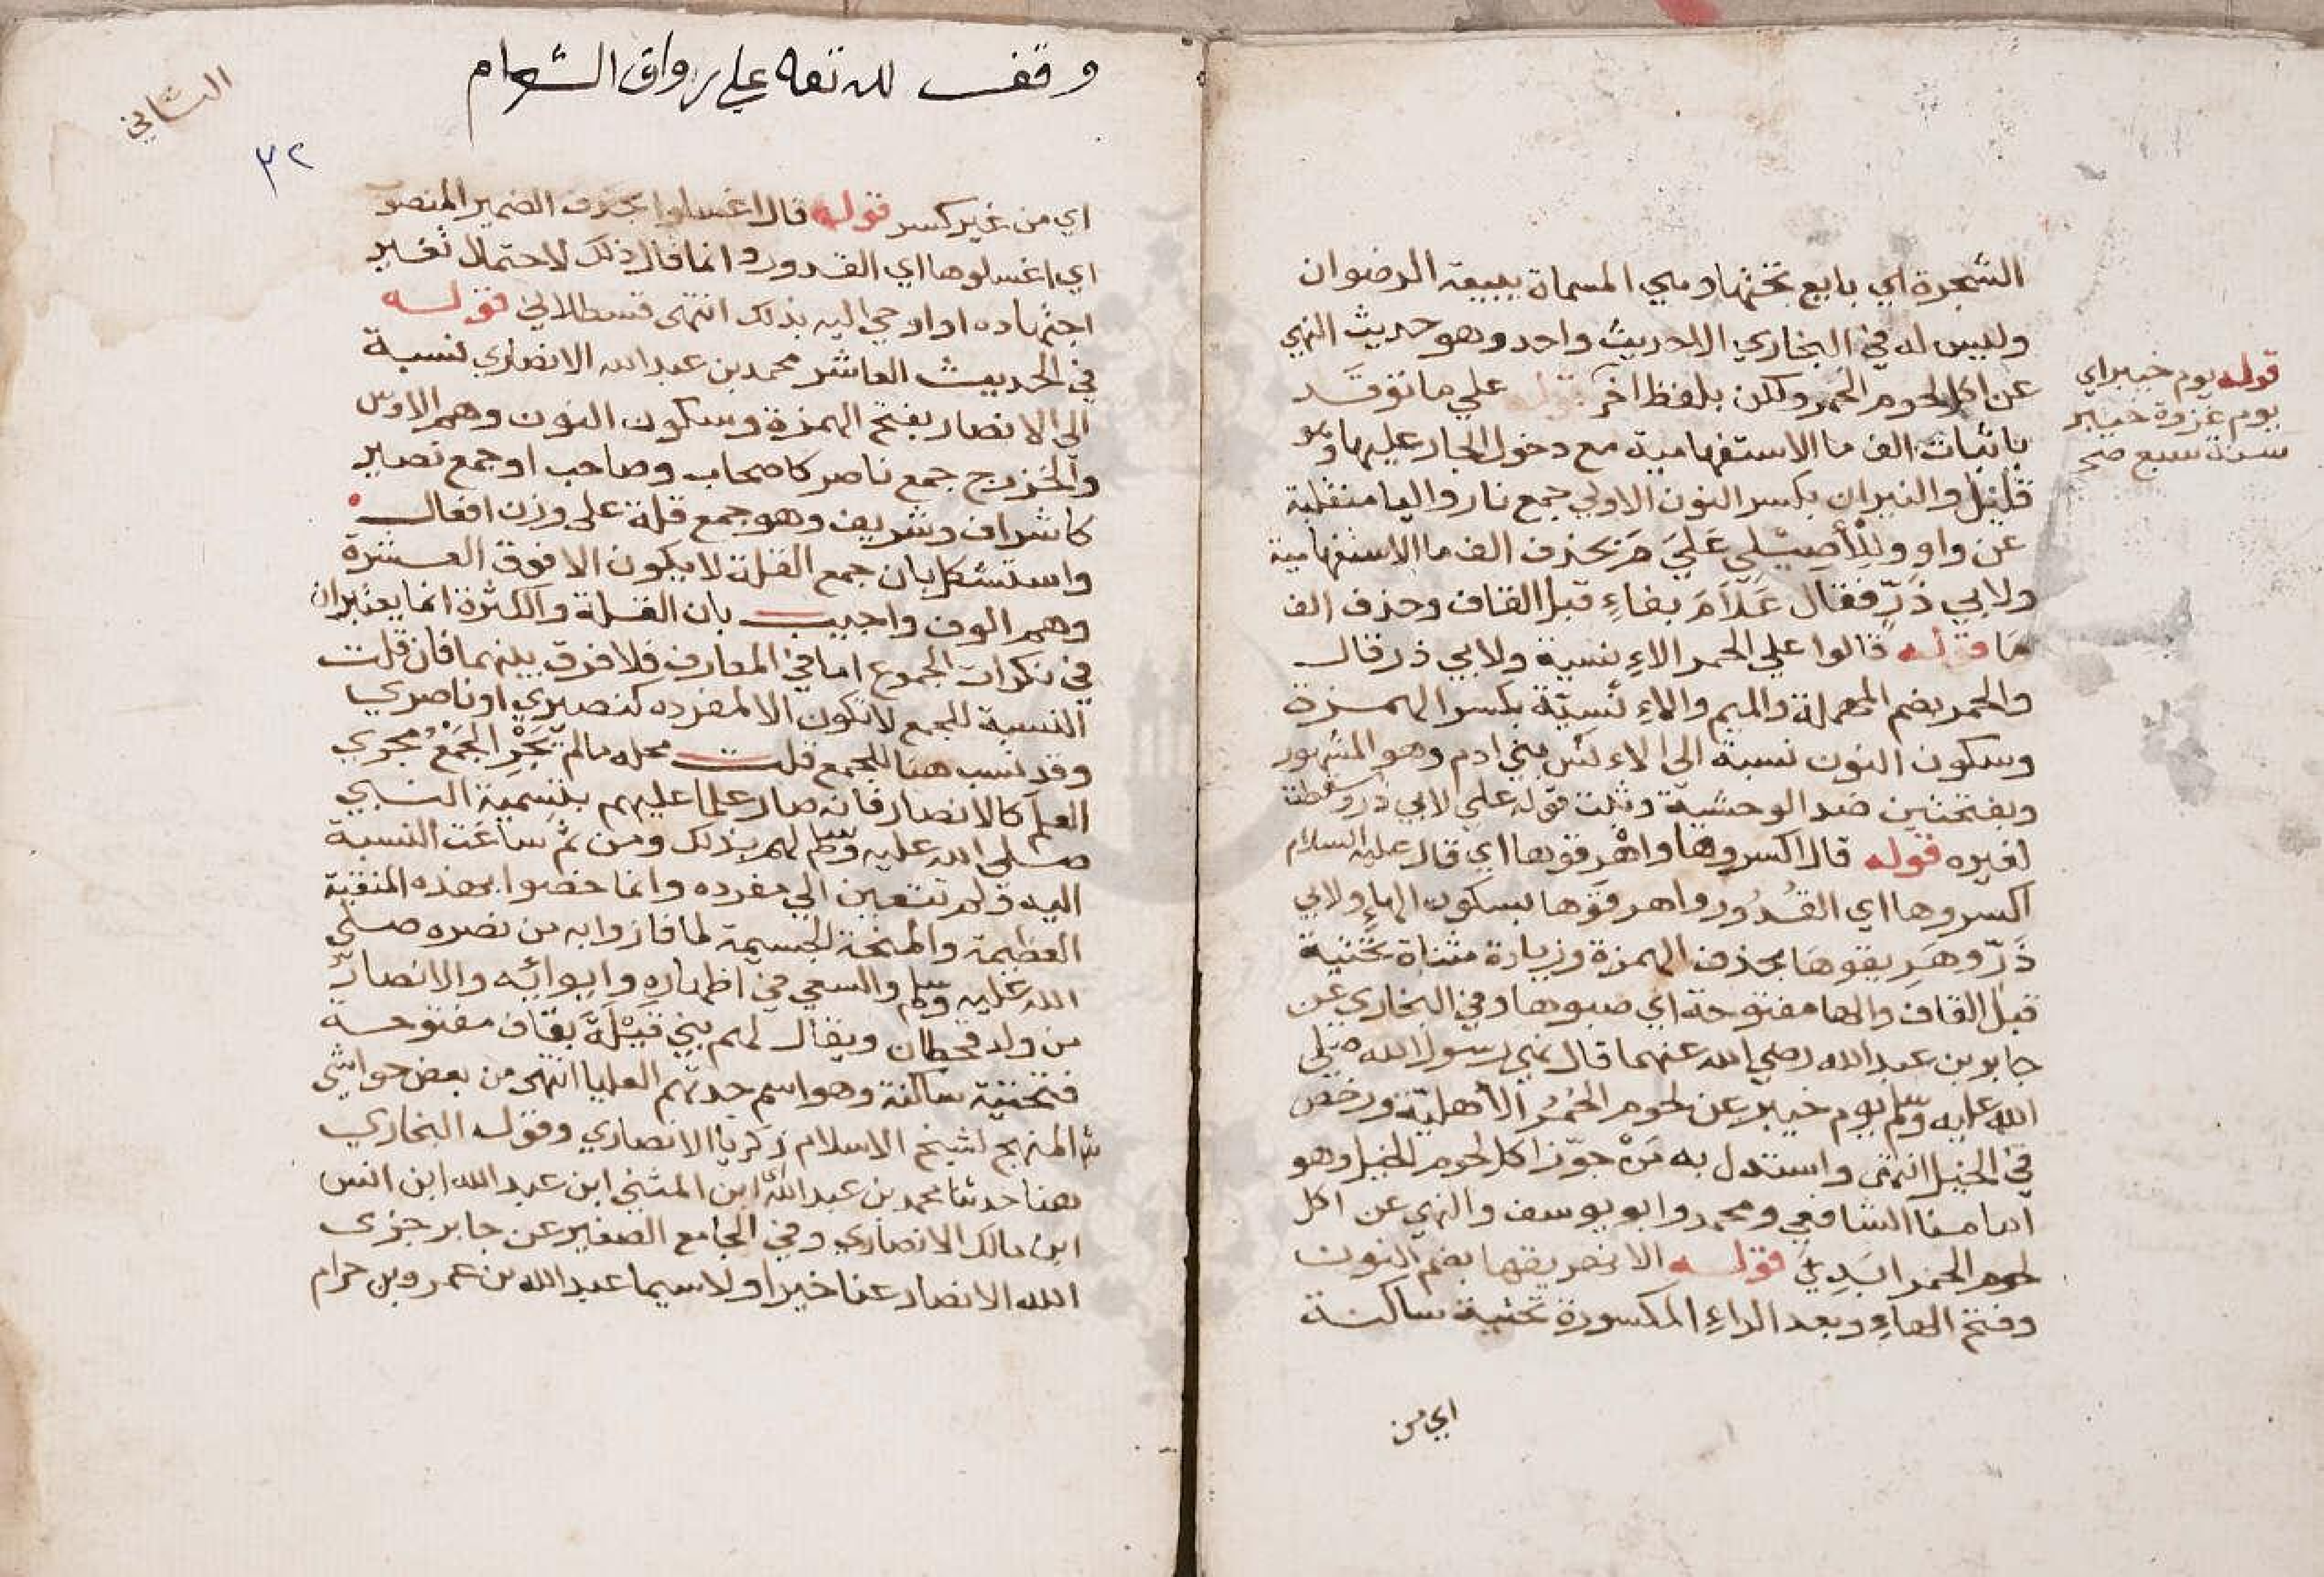 الشجرة اي بايع تحتها وهي المسماة ببيعة الرضوان
وليس له في البخاري الا حديث واحد وهو حديث النهي
عن اكل لحوم الحمر ولكن بلفظ اخر قوله علي ما توقد
باثبات الف ما الاستفهامية مع دخول الجار عليها وهو
قليل والنيران بكسر النون الاولي جمع نار واليا منقلبة
عن واو وللأصيلي عَلَيَ مَ بحذف الف ما الاستفهامية
ولابي ذَرٍّ فقال عَلَامَ بفاءٍ قبل القاف وحذف الف
مَا قوله قالوا علي الحمر الانسية ولابي ذر قال
والحمر بضم المهملة والميم والانسيّة بكسر الهمزة
وسكون النون نسبة الى الانس بني ادم وهو المشهور
وبفتحتين ضد الوحشيّة وثبت قوله علي لابي ذر وسقطت
لغيره قوله قال اكسروها واهْرقوها اي قال عليه السلام
اكسروها اي القُدُور واهرقوها بسكون الهاءِ ولابي
ذَرّ وهَرِيقوهَا بحذف الهمزة وزيادة مثناة تحتية
قبل القاف والها مفتوحة اي صبوها وفي البخاري عن
جابر بن عبد الله رضي الله عنهما قال نهي رسول الله صلي
الله عليه وسلم يوم خيبر عن لحوم الحُمُر الأهليّة ورخص
في الخيل انتهى واستدل به مَنْ جوّز اكل لحوم الخيل وهو
امامنا الشافعي ومحمد وابو يوسف والنهي عن اكل
لحوم الحمر ابَدِيٌّ قوله الا نهريقها بضم النون
وفتح الهاءِ وبعد الراءِ المكسورة تحتية ساكنة
اي من
قوله يوم خيبر اي
يوم غزوة خيبر
سنة سبع صح
وقف لله تعه علي رواق الشوام
الثاني
٣٢
اي من غير كسر قوله قال اغسلوا بحذف الضمير المنصوب
اي اغسلوها اي القدور وانما قال ذلك لاحتمال تغير
اجتهاده او اوحي اليه بذلك انتهى قسطلاني قوله
في الحديث العاشر محمد بن عبد الله الانصاري نسبة
الى الانصار بفتح الهمزة وسكون النون وهم الاوس
والخزرج جمع ناصر كاصحاب وصاحب او جمع نصير
كاشراف وشريف وهو جمع قلة على وزن افعال
واستشكل بان جمع القلة لا يكون الا فوق العشرة
وهم الوف واجيب بان القلة والكثرة انما يعتبران
في نكرات الجموع اما في المعارف فلا فرق بينهما فان قلت
النسبة للجمع لا تكون الا لمفرده كنصيري او ناصري
وقد نسب هنا للجمع قلت محله ما لم يَجْرِ الجَمْعُ مجري
العلم كالانصار فانه صار علما عليهم بتسمية النبي
صلي الله عليه وسلم لهم بذلك ومن ثم ساغت النسبة
اليه ولم تتعين الي مفرده وانما خصوا بهذه المنقبة
العظيمة والمنحة الجسيمة لما فازوا به من نصره صلي
الله عليه وسلم والسعي في اظهاره وايوائه والانصار
من ولد قحطان ويقال لهم بني قَيْلَة بقاف مفتوحة
فتحتية ساكنة وهو اسم جدتهم العليا انتهى من بعض حواشي
ش المنهج لشيخ الاسلام زكريا الانصاري وقوله البخاري
هنا حدثنا محمد بن عبد الله ابن المثني ابن عبد الله ابن انس
ابن مالك الانصاري وفي الجامع الصغير عن جابر جزى
الله الانصار عنا خيرا ولا سيما عبد الله بن عمرو بن حرام